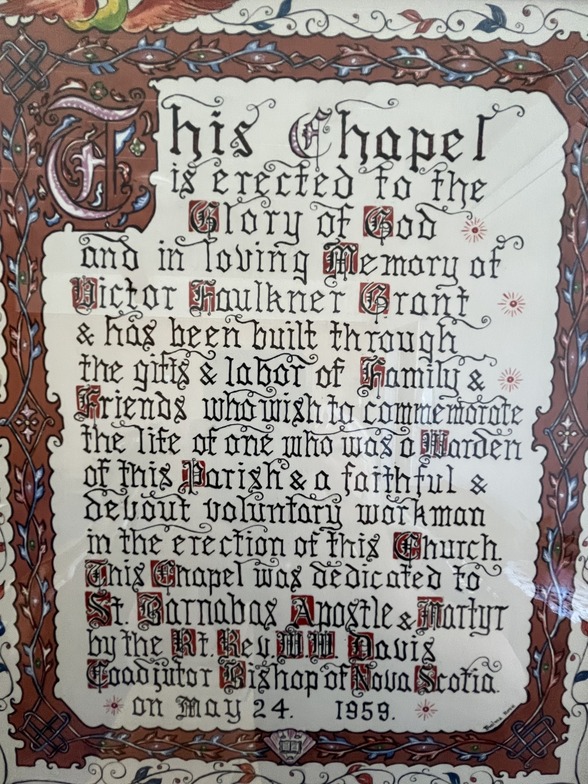 This Chapel
is erected to the
Glory of God
and in loving Memory of
Victor Faulkner Grant
& has been built through
the gifts & labor of Family &
Friends who wish to commemorate
the life of one who was a Warden
of this Parish & a faithful &
devout voluntary workman
in the erection of this Church.
This Chapel was dedicated to
St. Barnabas Apostle & Martyr
by the Rt. Rev W W Davis
Coadjutor Bishop of Nova Scotia.
on May 24. 1959.